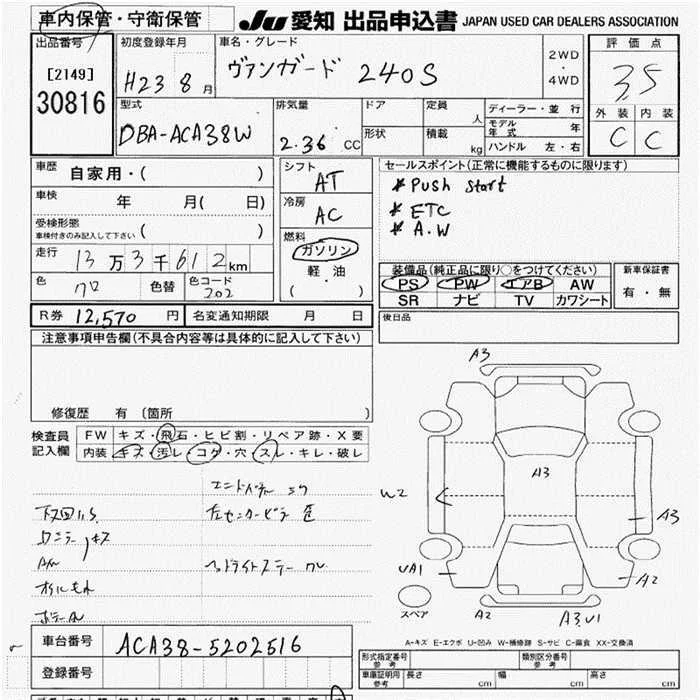 車内保管・守衛保管
JU 愛知 出品申込書 JAPAN USED CAR DEALERS ASSOCIATION
出品番号
[2149]
30816
初度登録年月
H23 8 月
車名・グレード
ヴァンガード 240S
2WD
・
4WD
評価点
3.5
外装 内装
C C
型式
DBA-ACA38W
排気量
2.36 CC
ドア
形状
定員
人
積載
kg
ディーラー・並行
モデル年式 年
ハンドル 左・右
車歴 自家用・( )
車検 年 月( 日)
受検形態
車検付きのみ記入して下さい ( )
走行 13万3千612km
色 クロ 色替 色コード 202
シフト
AT
冷房
AC
燃料
ガソリン
軽油
( )
セールスポイント(正常に機能するものに限ります)
* Push start
* ETC
* A.W
装備品(純正品に限り○をつけてください)
PS PW エアB AW
SR ナビ TV カワシート
新車保証書
有・無
R券 12,570 円 名変通知期限 月 日
後日品
注意事項申告欄(不具合内容等は具体的に記入して下さい)
修復歴 有 〔箇所 〕
検査員記入欄
FW キズ・飛石・ヒビ割・リペア跡・X要
内装 キズ・汚レ・コゲ・穴・スレ・キレ・破レ
下回りS
A3
A3
W2
A3
UA1
A2
A2
A3,U1
スペア
cm
cm
cm
cm
A-キズ E-エクボ U-凹み W-補修跡 S-サビ C-腐食 XX-交換済
車台番号 ACA38-5202516
登録番号
型式指定番号
参考
類別区分番号
参考
車庫証明用
参考
長さ cm 幅 cm 高さ cm